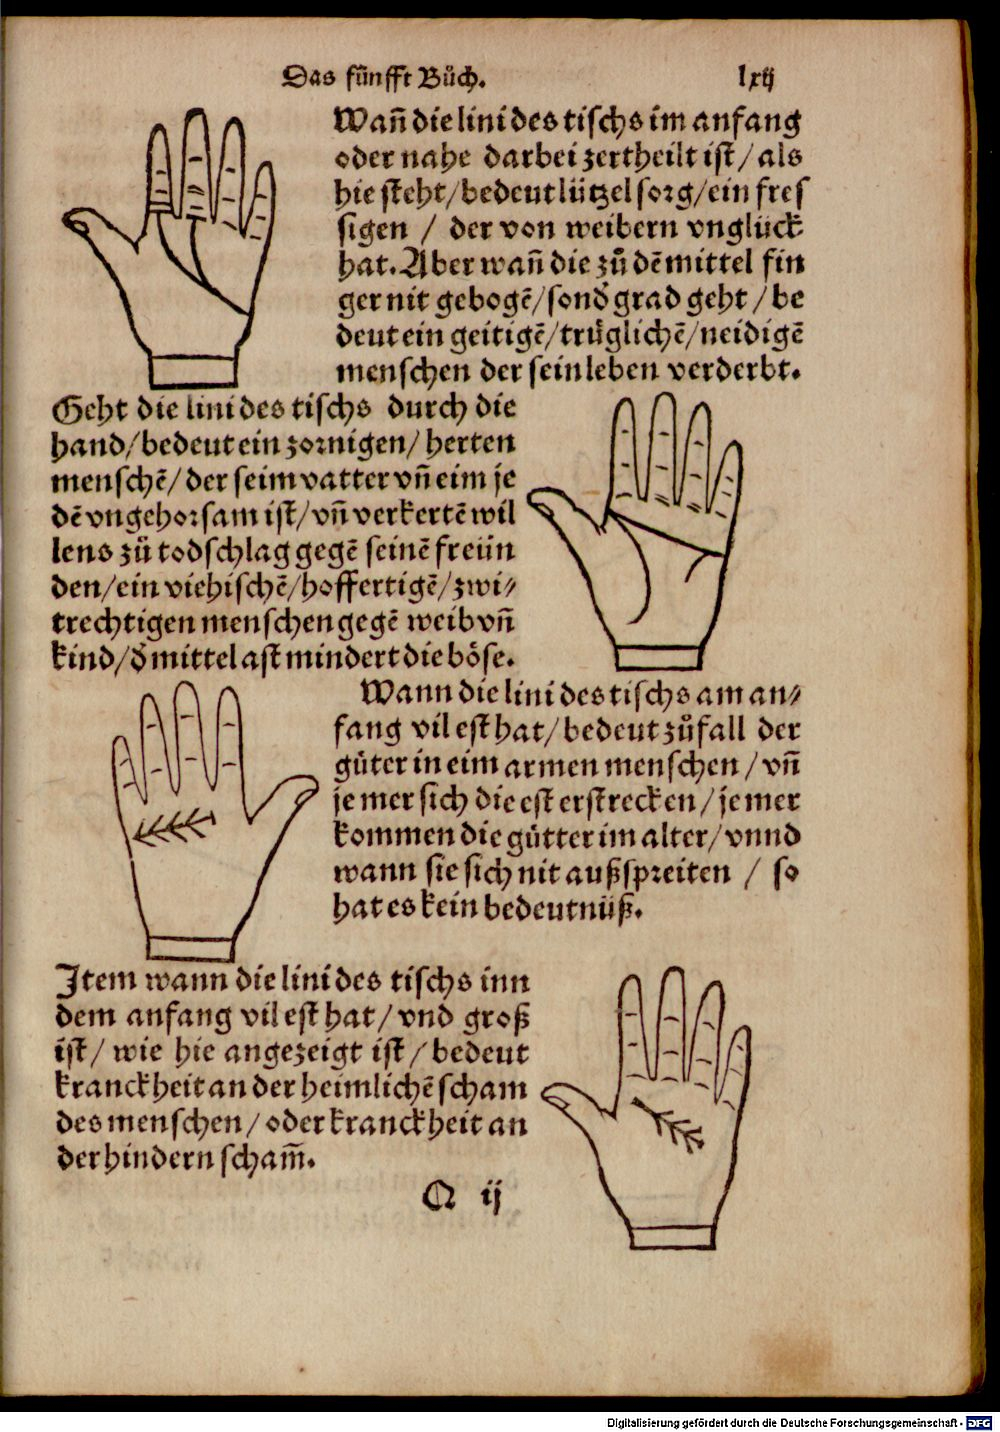 Das fünfft Bůch. lxij
Wañ die lini des tischs im anfang
oder nahe darbei zertheilt ist / als
hie steht / bedeut lützel sorg / ein fres
sigen / der von weibern vnglück
hat. Aber wañ die zů dē mittel fin
ger nit gebogē / sonď grad geht / be
deut ein geitigē / trüglichē / neidigē
menschen der sein leben verderbt.
Geht die lini des tischs durch die
hand / bedeut ein zornigen / herten
menschē / der seim vatter vñ eim je
dē vngehorsam ist / vñ verkertē wil
lens zů todschlag gegē seinē freün
den / ein viehischē / hoffertigē / zwi⸗
trechtigen menschen gegē weib vñ
kind / ď mittel ast mindert die böse.
Wann die lini des tischs am an⸗
fang vil est hat / bedeut zůfall der
güter in eim armen menschen / vñ
je mer sich die est erstrecken / je mer
kommen die gütter im alter / vnnd
wann sie sich nit außspreiten / so
hat es kein bedeutnüß.
Item wann die lini des tischs inn
dem anfang vil est hat / vnd groß
ist / wie hie angezeigt ist / bedeut
kranckheit an der heimlichē scham
des menschen / oder kranckheit an
der hindern scham̃.
Q ij
Digitalisierung gefördert durch die Deutsche Forschungsgemeinschaft - DFG